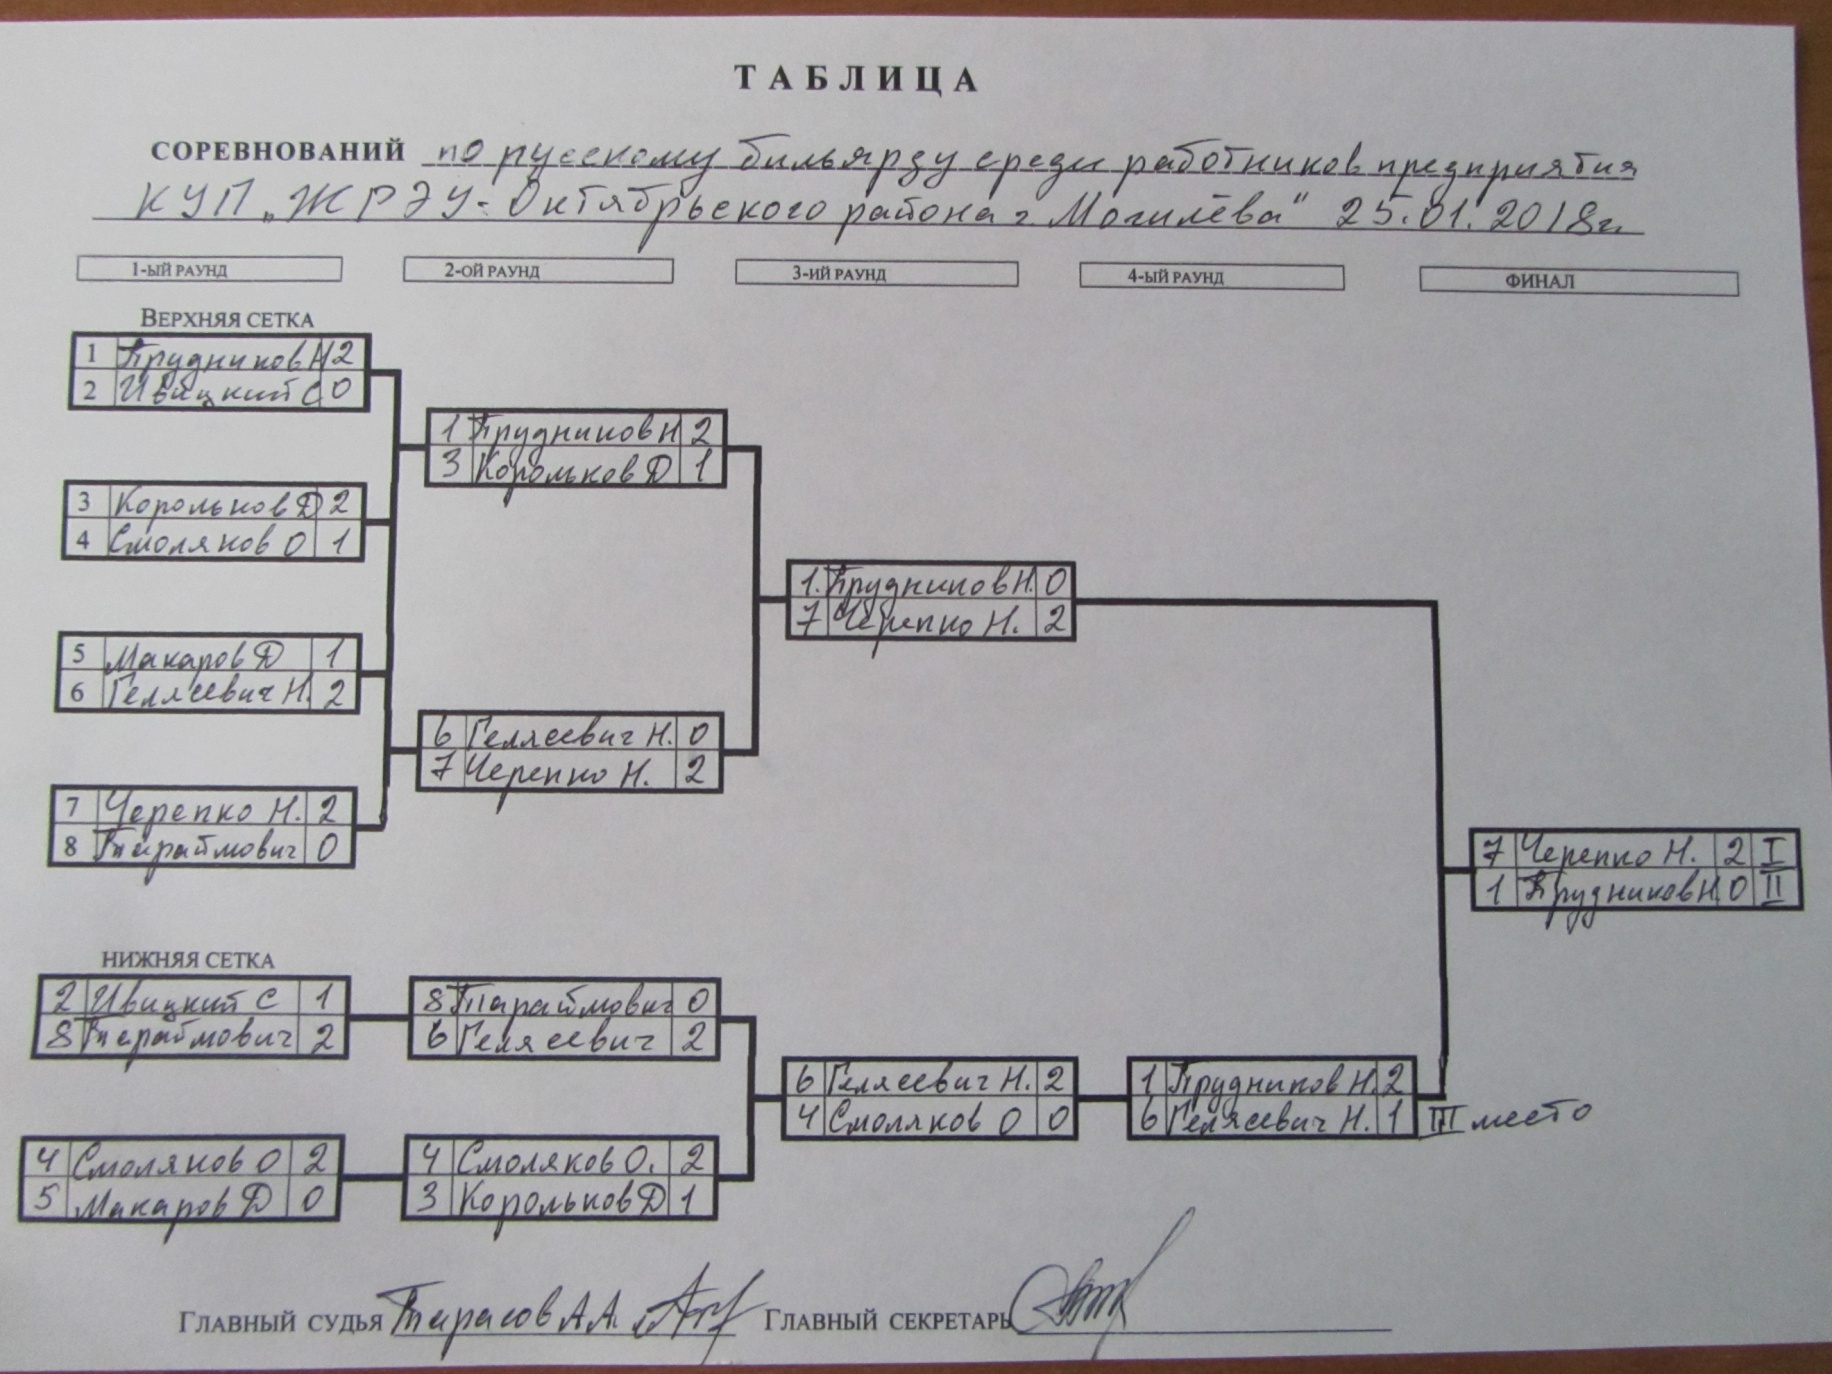 ТАБЛИЦА
СОРЕВНОВАНИЙ по русскому бильярду среди работников предприятия
КУП „ЖРЭУ-Октябрьского района г. Могилёва" 25.01.2018г.
1-ЫЙ РАУНД 2-ОЙ РАУНД 3-ИЙ РАУНД 4-ЫЙ РАУНД ФИНАЛ
ВЕРХНЯЯ СЕТКА
1 Прудников Н 2
2 Ивицкий С 0
3 Корольков Д 2
4 Смоляков О 1
5 Макаров Д 1
6 Гелясевич Н. 2
7 Черепко Н. 2
8 Тараймович 0
1 Прудников Н 2
3 Корольков Д 1
6 Гелясевич Н. 0
7 Черепко Н. 2
1. Прудников Н. 0
7 Черепко Н. 2
7 Черепко Н. 2 I
1 Прудников Н. 0 II
НИЖНЯЯ СЕТКА
2 Ивицкий С 1
8 Тараймович 2
4 Смоляков О 2
5 Макаров Д 0
8 Тараймович 0
6 Гелясевич 2
4 Смоляков О. 2
3 Корольков Д 1
6 Гелясевич Н. 2
4 Смоляков О 0
1 Прудников Н. 2
6 Гелясевич Н. 1 III место
ГЛАВНЫЙ СУДЬЯ Тарасов А.А. ГЛАВНЫЙ СЕКРЕТАРЬ